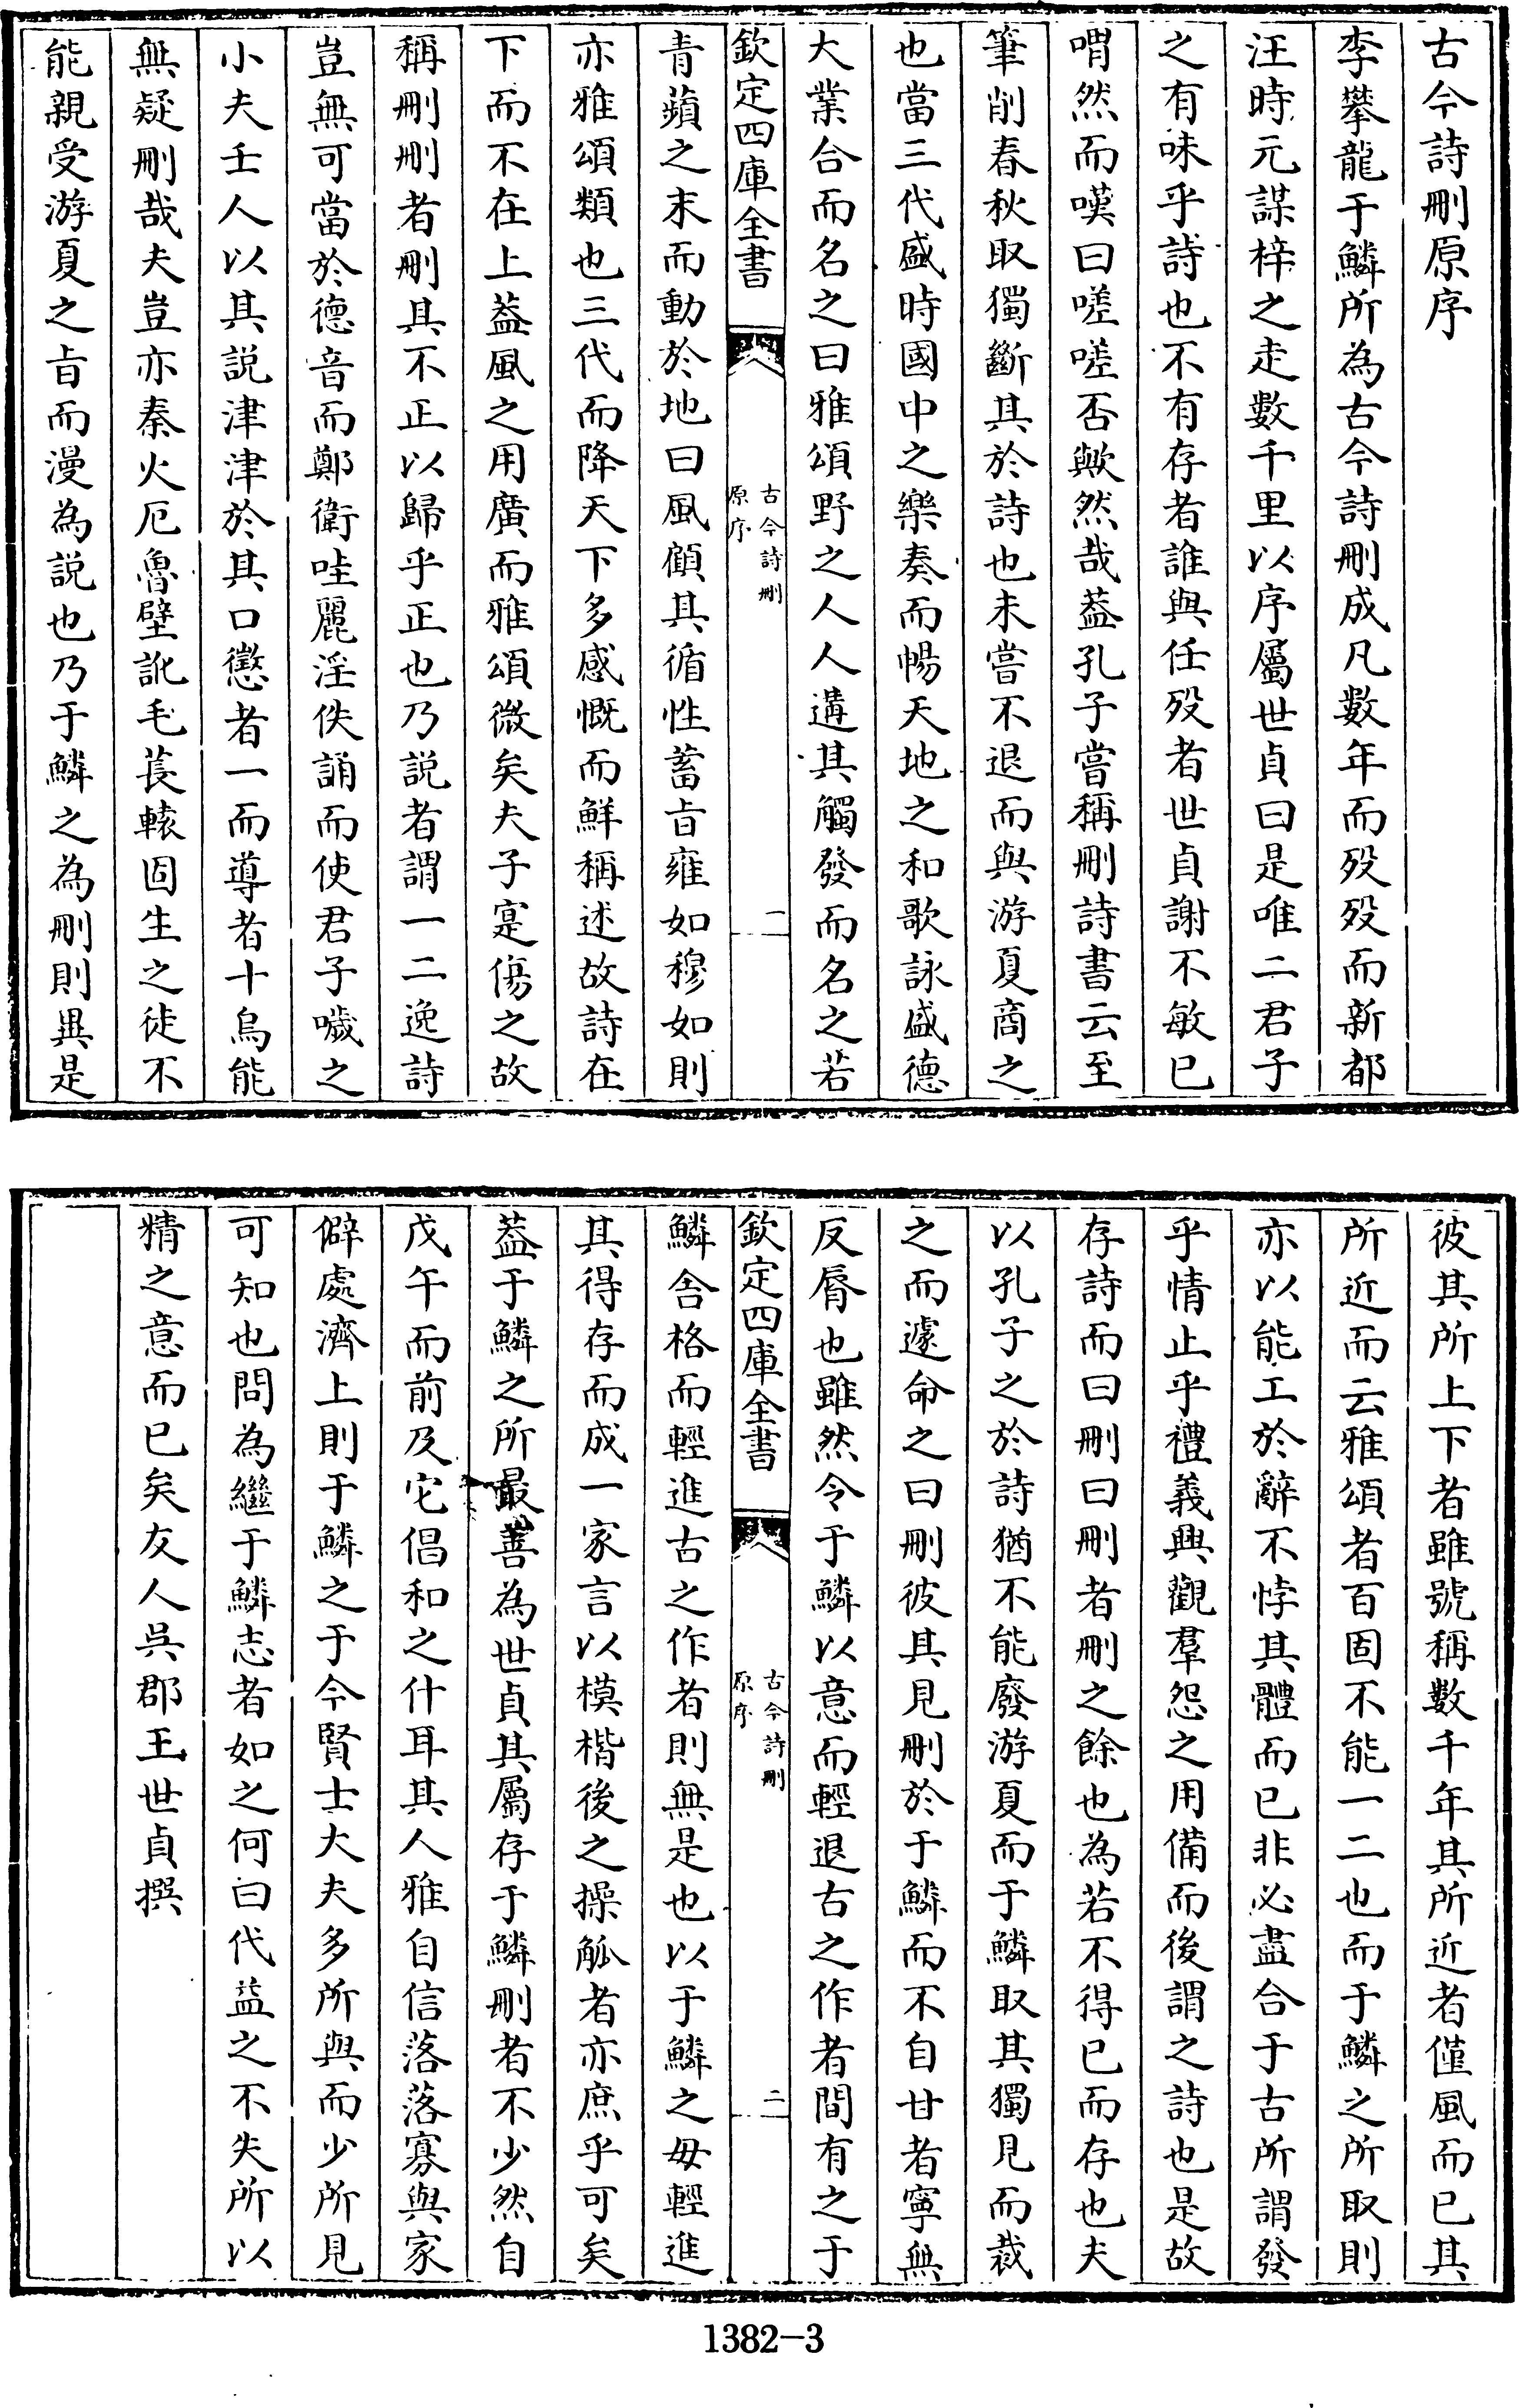 古今詩刪原序
李攀龍于鱗所為古今詩刪成凡數年而歿歿而新都
汪時元謀梓之走數千里以序屬世貞曰是唯二君子
之有味乎詩也不有存者誰與任歿者世貞謝不敏已
喟然而嘆曰嗟嗟否歟然哉葢孔子嘗稱刪詩書云至
筆削春秋取獨斷其於詩也未嘗不退而與游夏商之
也當三代盛時國中之樂奏而暢天地之和歌詠盛德
大業合而名之曰雅頌野之人人遘其觸發而名之若
欽定四庫全書
古今詩刪
原序
一
青蘋之末而動於地曰風顧其循性蓄旨雍如穆如則
亦雅頌類也三代而降天下多感慨而鮮稱述故詩在
下而不在上葢風之用廣而雅頌微矣夫子寔傷之故
稱刪刪者刪其不正以歸乎正也乃説者謂一二逸詩
豈無可當於德音而鄭衛哇麗淫佚誦而使君子噦之
小夫壬人以其説津津於其口懲者一而導者十烏能
無疑刪哉夫豈亦秦火厄魯壁訛毛萇轅固生之徒不
能親受游夏之旨而漫為説也乃于鱗之為刪則異是
彼其所上下者雖號稱數千年其所近者僅風而已其
所近而云雅頌者百固不能一二也而于鱗之所取則
亦以能工於辭不悖其體而已非必盡合于古所謂發
乎情止乎禮義興觀羣怨之用備而後謂之詩也是故
存詩而曰刪曰刪者刪之餘也為若不得已而存也夫
以孔子之於詩猶不能廢游夏而于鱗取其獨見而裁
之而遽命之曰刪彼其見刪於于鱗而不自甘者寧無
反脣也雖然令于鱗以意而輕退古之作者間有之于
欽定四庫全書
古今詩刪
原序
二
鱗舍格而輕進古之作者則無是也以于鱗之毋輕進
其得存而成一家言以模楷後之操觚者亦庶乎可矣
葢于鱗之所最善為世貞其屬存于鱗刪者不少然自
戊午而前及它倡和之什耳其人雅自信落落寡與家
僻處濟上則于鱗之于今賢士大夫多所與而少所見
可知也問為繼于鱗志者如之何曰代益之不失所以
精之意而已矣友人吳郡王世貞撰
1382-3